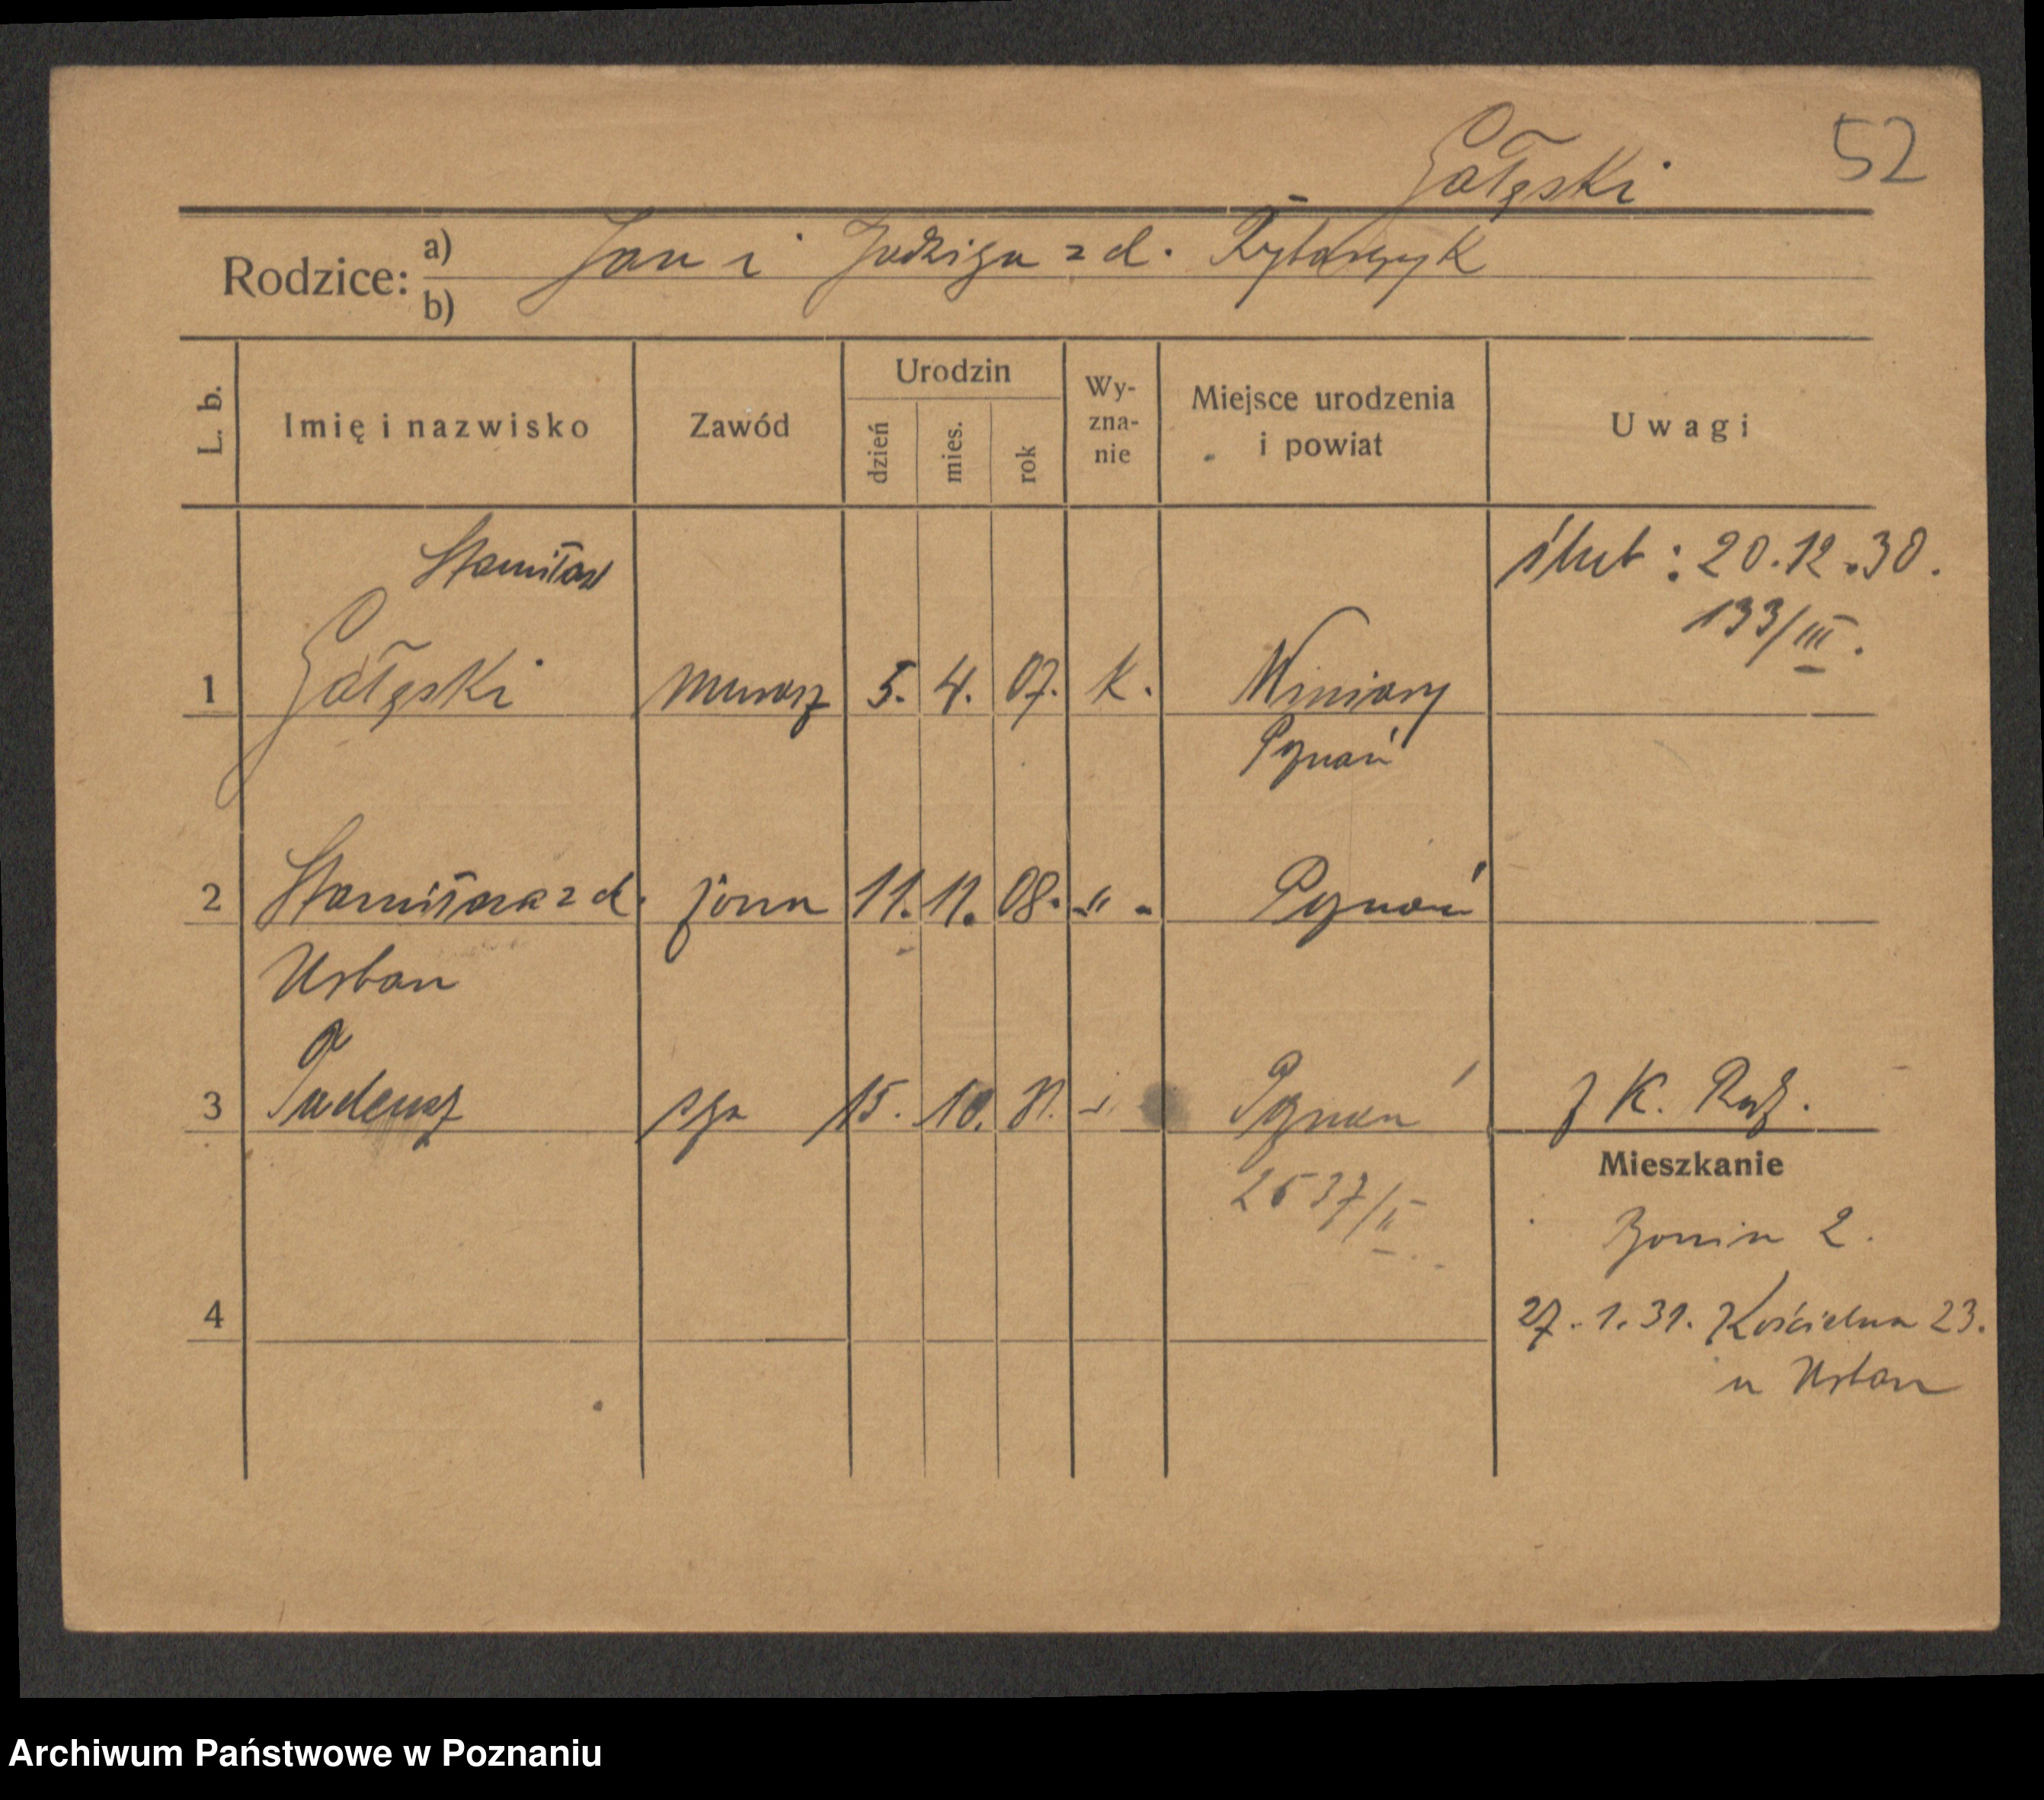 52
Gałęski
Rodzice: a) Jan i Jadwiga z d. Rybarczyk
b)
L. b. Imię i nazwisko Zawód Urodzin dzień mies. rok Wy- zna- nie Miejsce urodzenia i powiat Uwagi
Stanisław ślub : 20.12.30.
133/III.
1 Gałęski murarz 5. 4. 07. k. Winiary
Poznań
2 Stanisława z d. żona 11. 11. 08. -"- Poznań
Urban
3 Tadeusz syn 15. 10. 31. -"- Poznań z K. Rodz.
Mieszkanie
2537/II
Bonin 2.
4 27.1.31. Kościelna 23.
u Urban
Archiwum Państwowe w Poznaniu